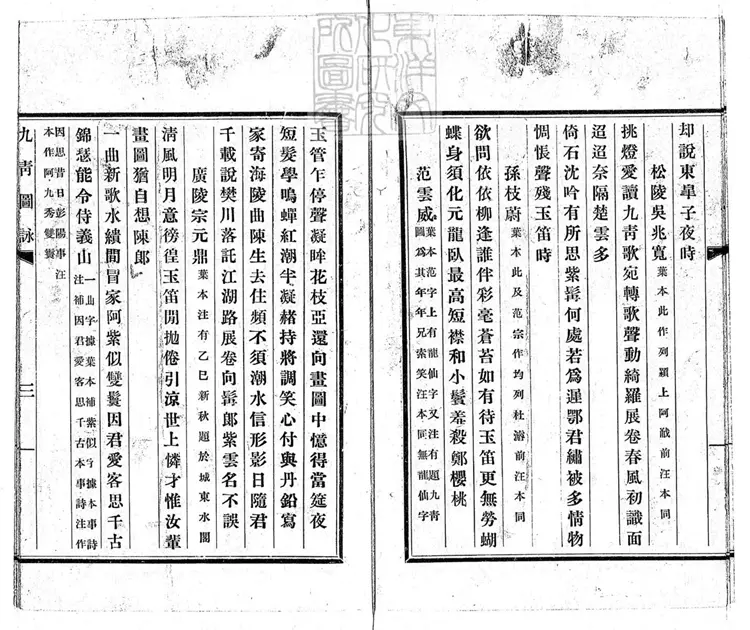 却說東臯子夜時
松陵吳兆寬 葉本此作列潁上阿戢前汪本同
挑燈愛讀九青歌宛轉歌聲動綺羅展卷春風初識面
迢迢奈隔楚雲多
倚石沈吟有所思紫髯何處若為遲鄂君繡被多情物
惆悵聲殘玉笛時
孫枝蔚 葉本此及范宗作均列杜濬前汪本同
欲問依依柳逢誰伴彩毫蒼苔如有待玉笛更無勞蝴
蝶身須化元龍臥最高短襟和小鬟羞殺鄭櫻桃
范雲威 葉本范字上有龍仙字又注有題九青
圖為其年年兄索笑汪本同無龍仙字
玉管乍停聲凝眸花枝亞還向畫圖中憶得當筵夜
短髮學鳴蟬紅潮半凝赭持將調笑心付與丹鉛寫
家寄海陵曲陳生去住頻不須潮水信形影日隨君
千載說樊川落託江湖路展卷向髯郎紫雲名不誤
廣陵宗元鼎 葉本注有乙巳新秋題於城東水閣
清風明月意徬徨玉笛閒拋倦引涼世上憐才惟汝輩
畫圖猶自想陳郎
一曲新歌水繢間冒家阿紫似雙鬟因君愛客思千古
錦瑟能令侍義山 一山字據葉本補紫似字據本事詩
注補因君愛客思千古本事詩注作
因思昔日彭陽事汪
本作阿九秀雙鬟
九青圖詠
三